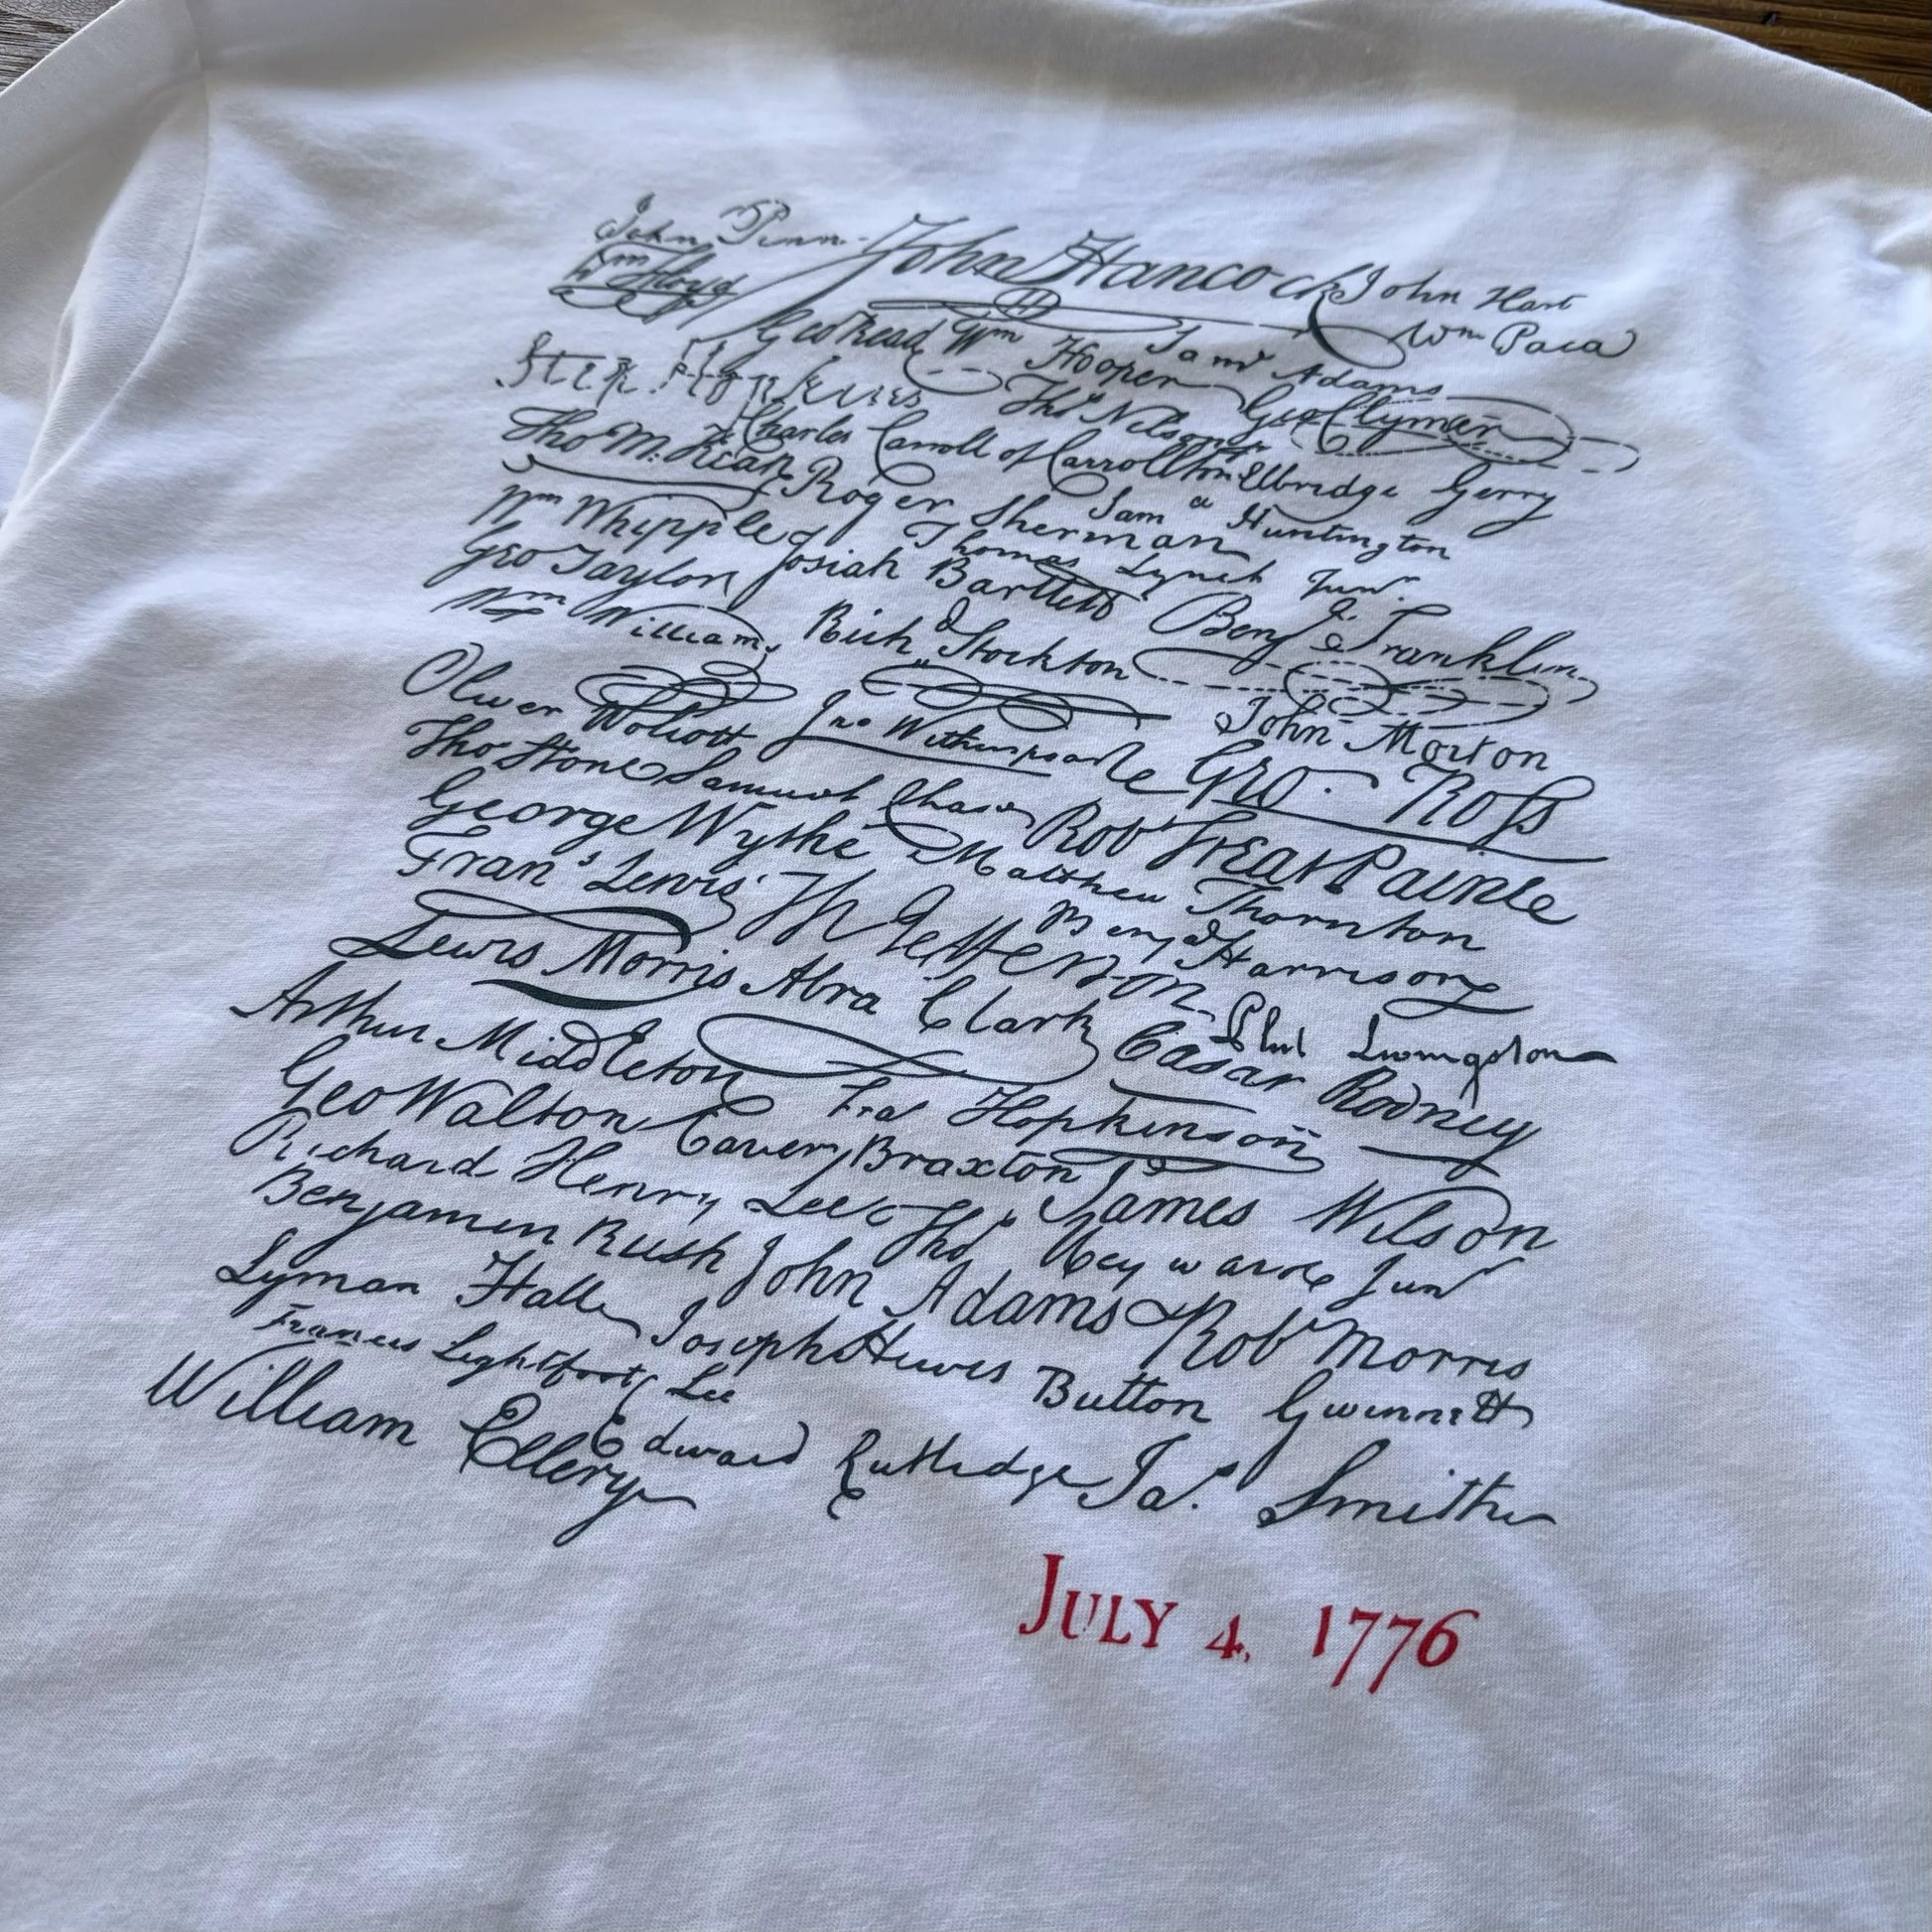 John Penn John Hancock John Hart
Wm Floyd Wm Paca
Geo Read Wm Hooper Saml Adams
Step. Hopkins Thos Nelson jr Geo Clymer
Charles Carroll of Carrollton Elbridge Gerry
Tho M:Kean Roger Sherman Saml Huntington
Wm Whipple Thomas Lynch Junr.
Geo Taylor Josiah Bartlett Benj Franklin
Wm Williams Richd Stockton
Oliver Wolcott Jno Witherspoon John Morton
Tho Stone Samuel Chase Geo. Ross
George Wythe Robt Treat Paine
Matthew Thornton
Frans Lewis Th Jefferson Benj Harrison
Lewis Morris Abra Clark Phil Livingston
Arthur Middleton Cæsar Rodney
Geo Walton Fras Hopkinson
Carter Braxton James Wilson
Richard Henry Lee Thos Heyward Junr
Benjamin Rush John Adams Robt Morris
Lyman Hall Joseph Hewes Button Gwinnett
Francis Lightfoot Lee
William Ellery Edward Rutledge Jas. Smith
JULY 4, 1776